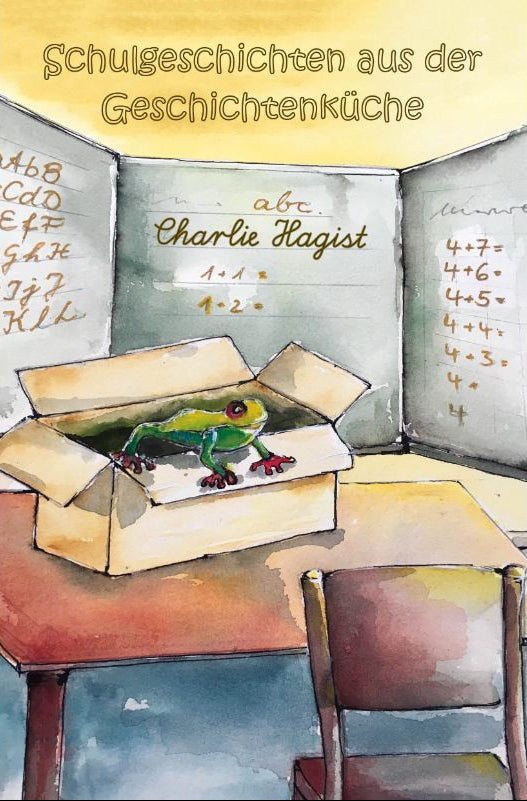 Schulgeschichten aus der
Geschichtenküche
AbB
CdD
EfF
ghH
IjJ
Kll
abc.
Charlie Hagist
1+1=
1+2=
4+7=
4+6=
4+5=
4+4=
4+3=
4=
4